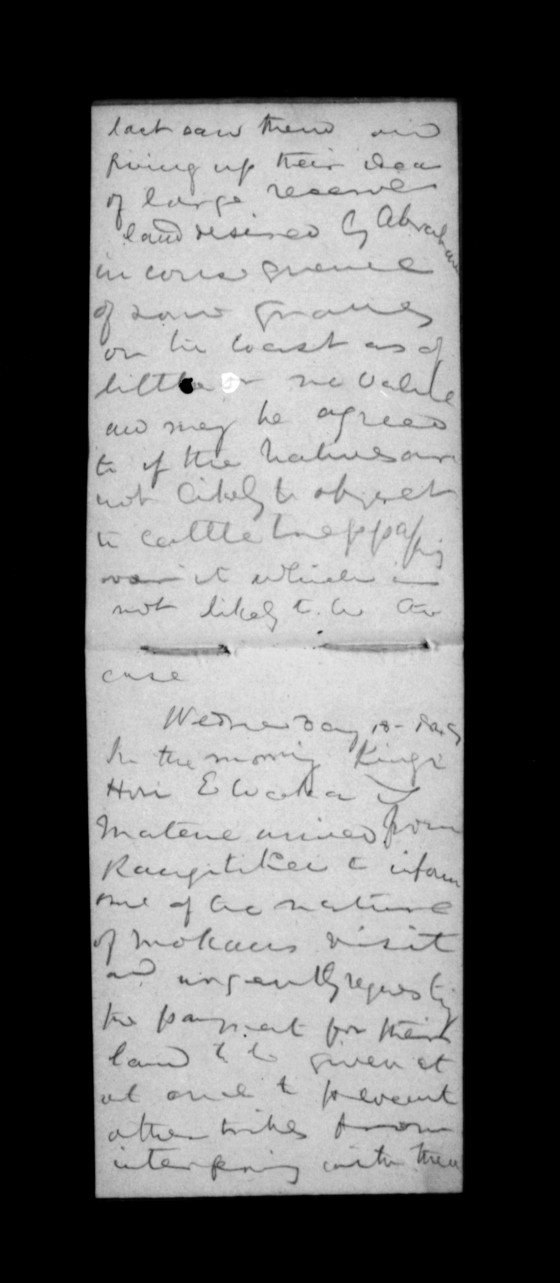 last saw them and
giving up their idea
of large reserves
land desired by Abraham
in consequence
of some graves
on the coast is of
little or no value
and may be agreed
to if the Natives are
not likely to object
to cattle trespassing
over it which is
not likely to be the
case
Wednesday 18
In the morning Kingi
Hori E Waka &
Matene arrived from
Rangitikei to inform
me of the nature
of Mokaus visit
and urgently requesting
the payment for their
land to be given at
at once to prevent
other tribes from
interfering with them